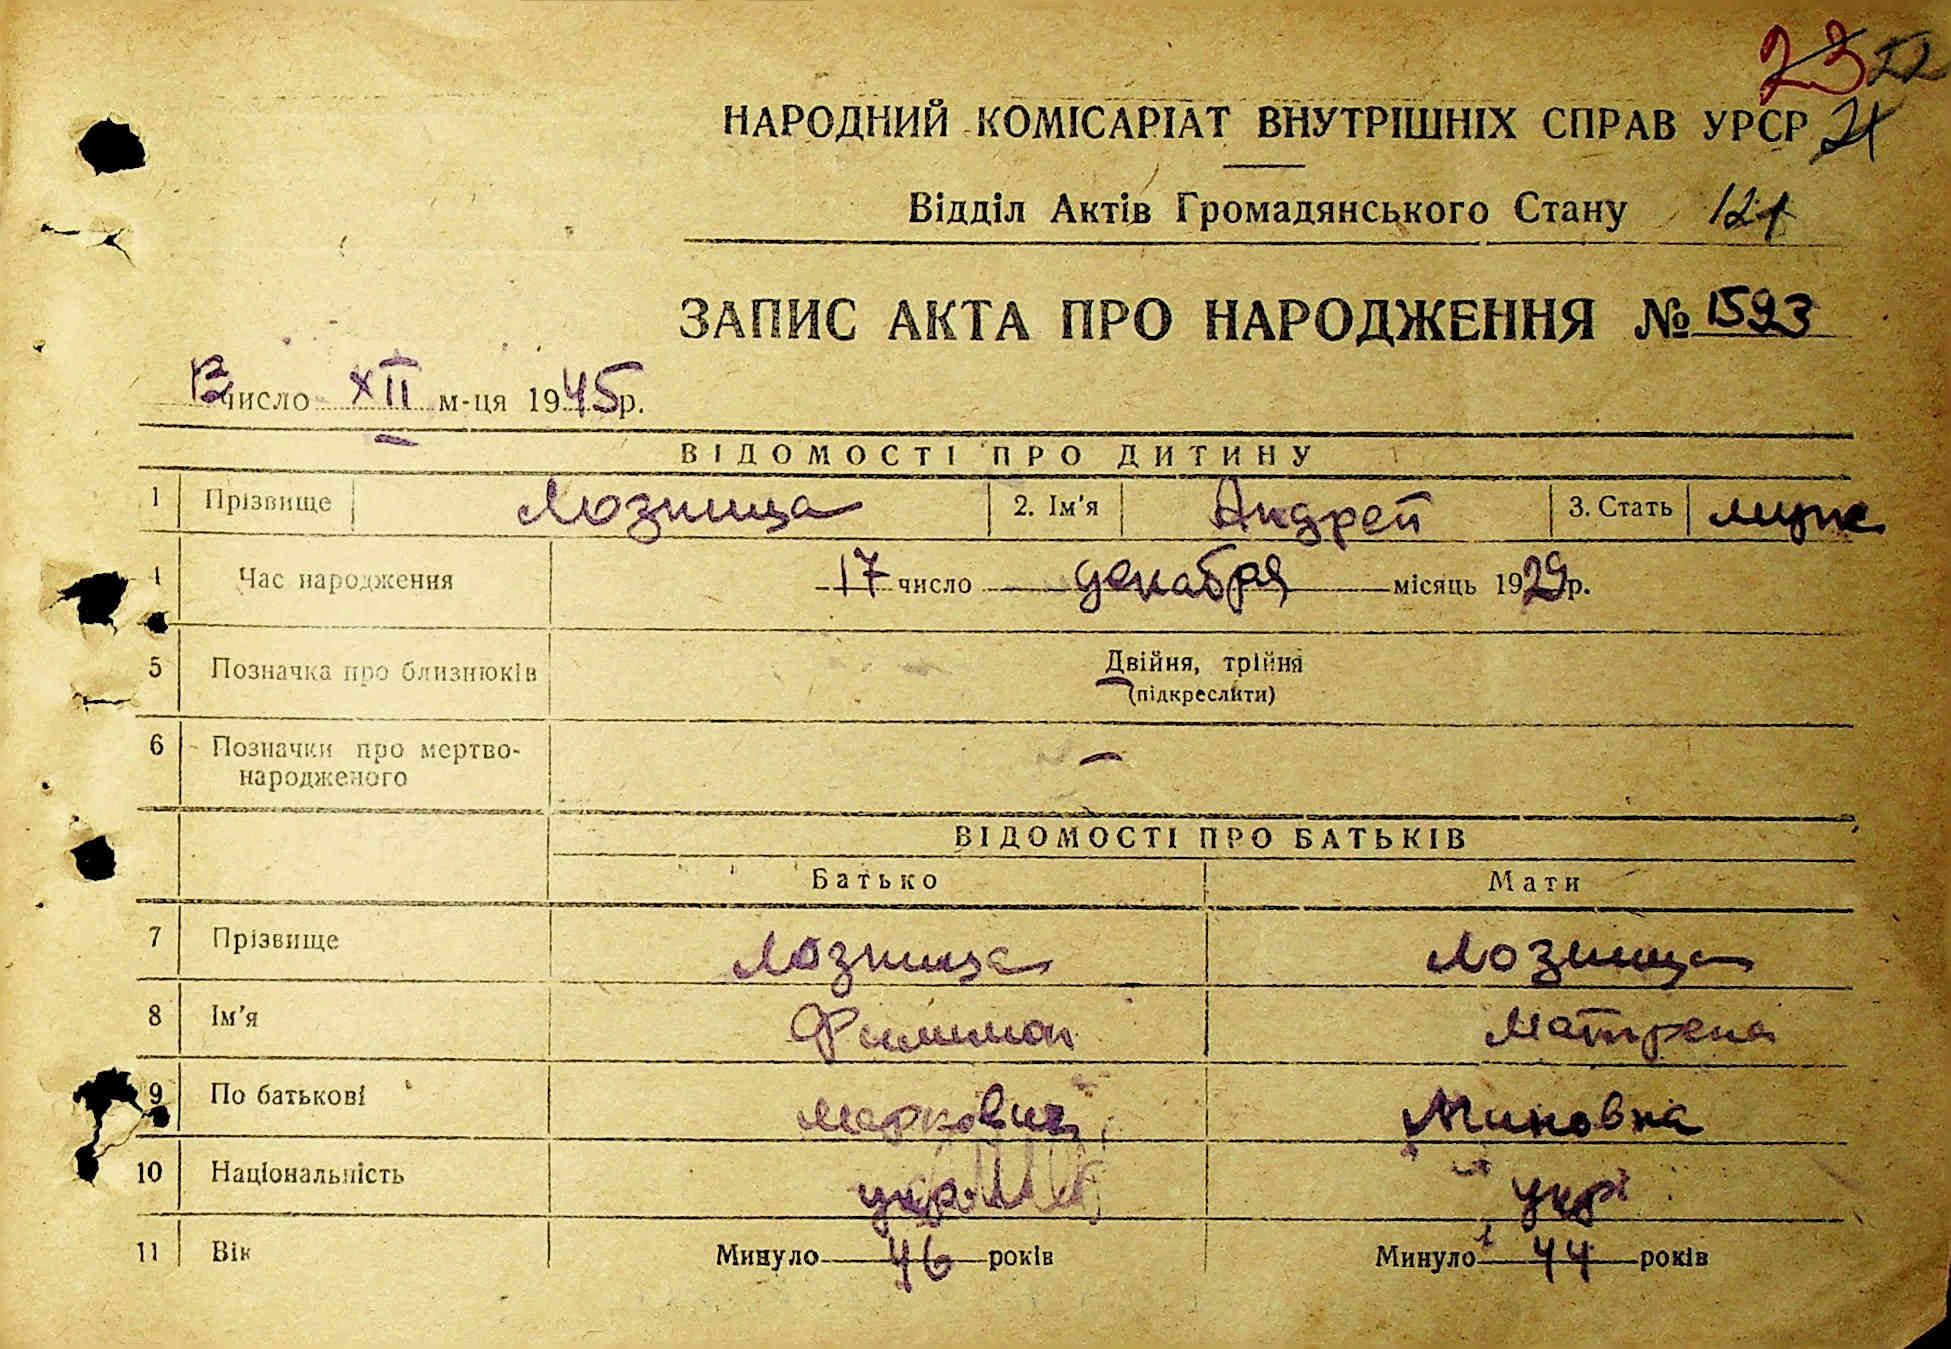 23 22
НАРОДНИЙ КОМІСАРІАТ ВНУТРІШНІХ СПРАВ УРСР 21
Відділ Актів Громадянського Стану 121
ЗАПИС АКТА ПРО НАРОДЖЕННЯ № 1593
13 число XII м-ця 1945 р.
ВІДОМОСТІ ПРО ДИТИНУ
1 Прізвище Лозница 2. Ім'я Андрей 3. Стать муж
4 Час народження 17 число декабря місяць 1929 р.
5 Позначка про близнюків Двійня, трійня
(підкреслити)
6 Позначки про мертво-
народженого —
ВІДОМОСТІ ПРО БАТЬКІВ
Батько Мати
7 Прізвище Лозница Лозница
8 Ім'я Филимон Матрена
9 По батькові Маркович Миновна
10 Національність укр. укр
11 Вік Минуло 46 років Минуло 44 років